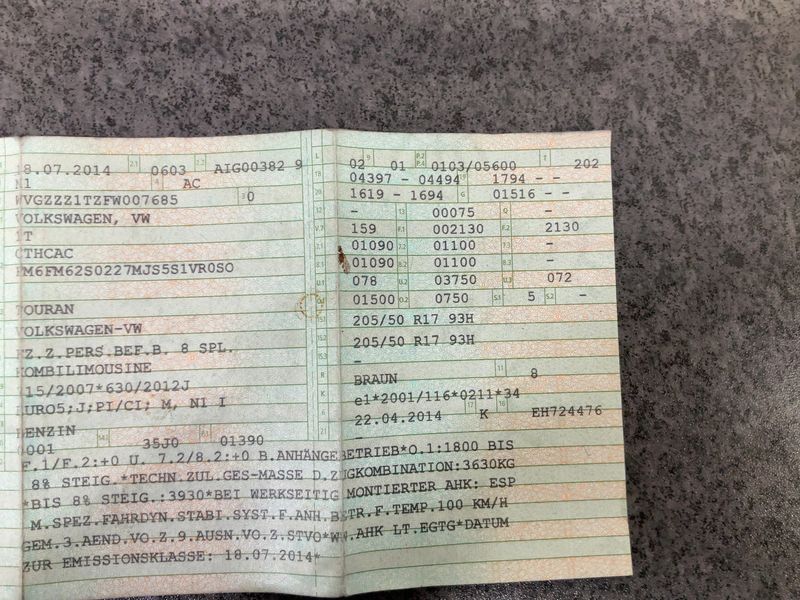 8.07.2014 2.1 0603 2.2 AIG00382 9
M1 4 AC
WVGZZZ1TZFW007685 0
VOLKSWAGEN, VW
1T
CTHCAC
FM6FM62S0227MJS5S1VR0SO
TOURAN
VOLKSWAGEN-VW
FZ.Z.PERS.BEF.B. 8 SPL.
KOMBILIMOUSINE
715/2007*630/2012J
EURO5;J;PI/CI; M, N1 I
BENZIN
0001 35J0 01390
L 02 9 01 P.2 P.4 0103/05600 T 202
18 04397 - 04494 19 1794 - -
20 1619 - 1694 G 01516 - -
12 - 13 00075 Q -
V.7 159 F.1 002130 F.2 2130
7.1 01090 7.2 01100 7.3 -
8.1 01090 8.2 01100 8.3 -
U.1 078 U.2 03750 U.3 072
O.1 01500 O.2 0750 S.1 5 S.2 -
15.1 205/50 R17 93H
15.2 205/50 R17 93H
15.3 -
R BRAUN 11 8
K e1*2001/116*0211*34
6 22.04.2014 17 K 16 EH724476
21 -
F.1/F.2:+0 U. 7.2/8.2:+0 B.ANHÄNGEBETRIEB*O.1:1800 BIS
8% STEIG.*TECHN.ZUL.GES-MASSE D.ZUGKOMBINATION:3630KG
*BIS 8% STEIG.:3930*BEI WERKSEITIG MONTIERTER AHK: ESP
M.SPEZ.FAHRDYN.STABI.SYST.F.ANH.BETR.F.TEMP.100 KM/H
GEM.3.AEND.VO.Z.9.AUSN.VO.Z.STVO*WW.AHK LT.EGTG*DATUM
ZUR EMISSIONSKLASSE: 18.07.2014*